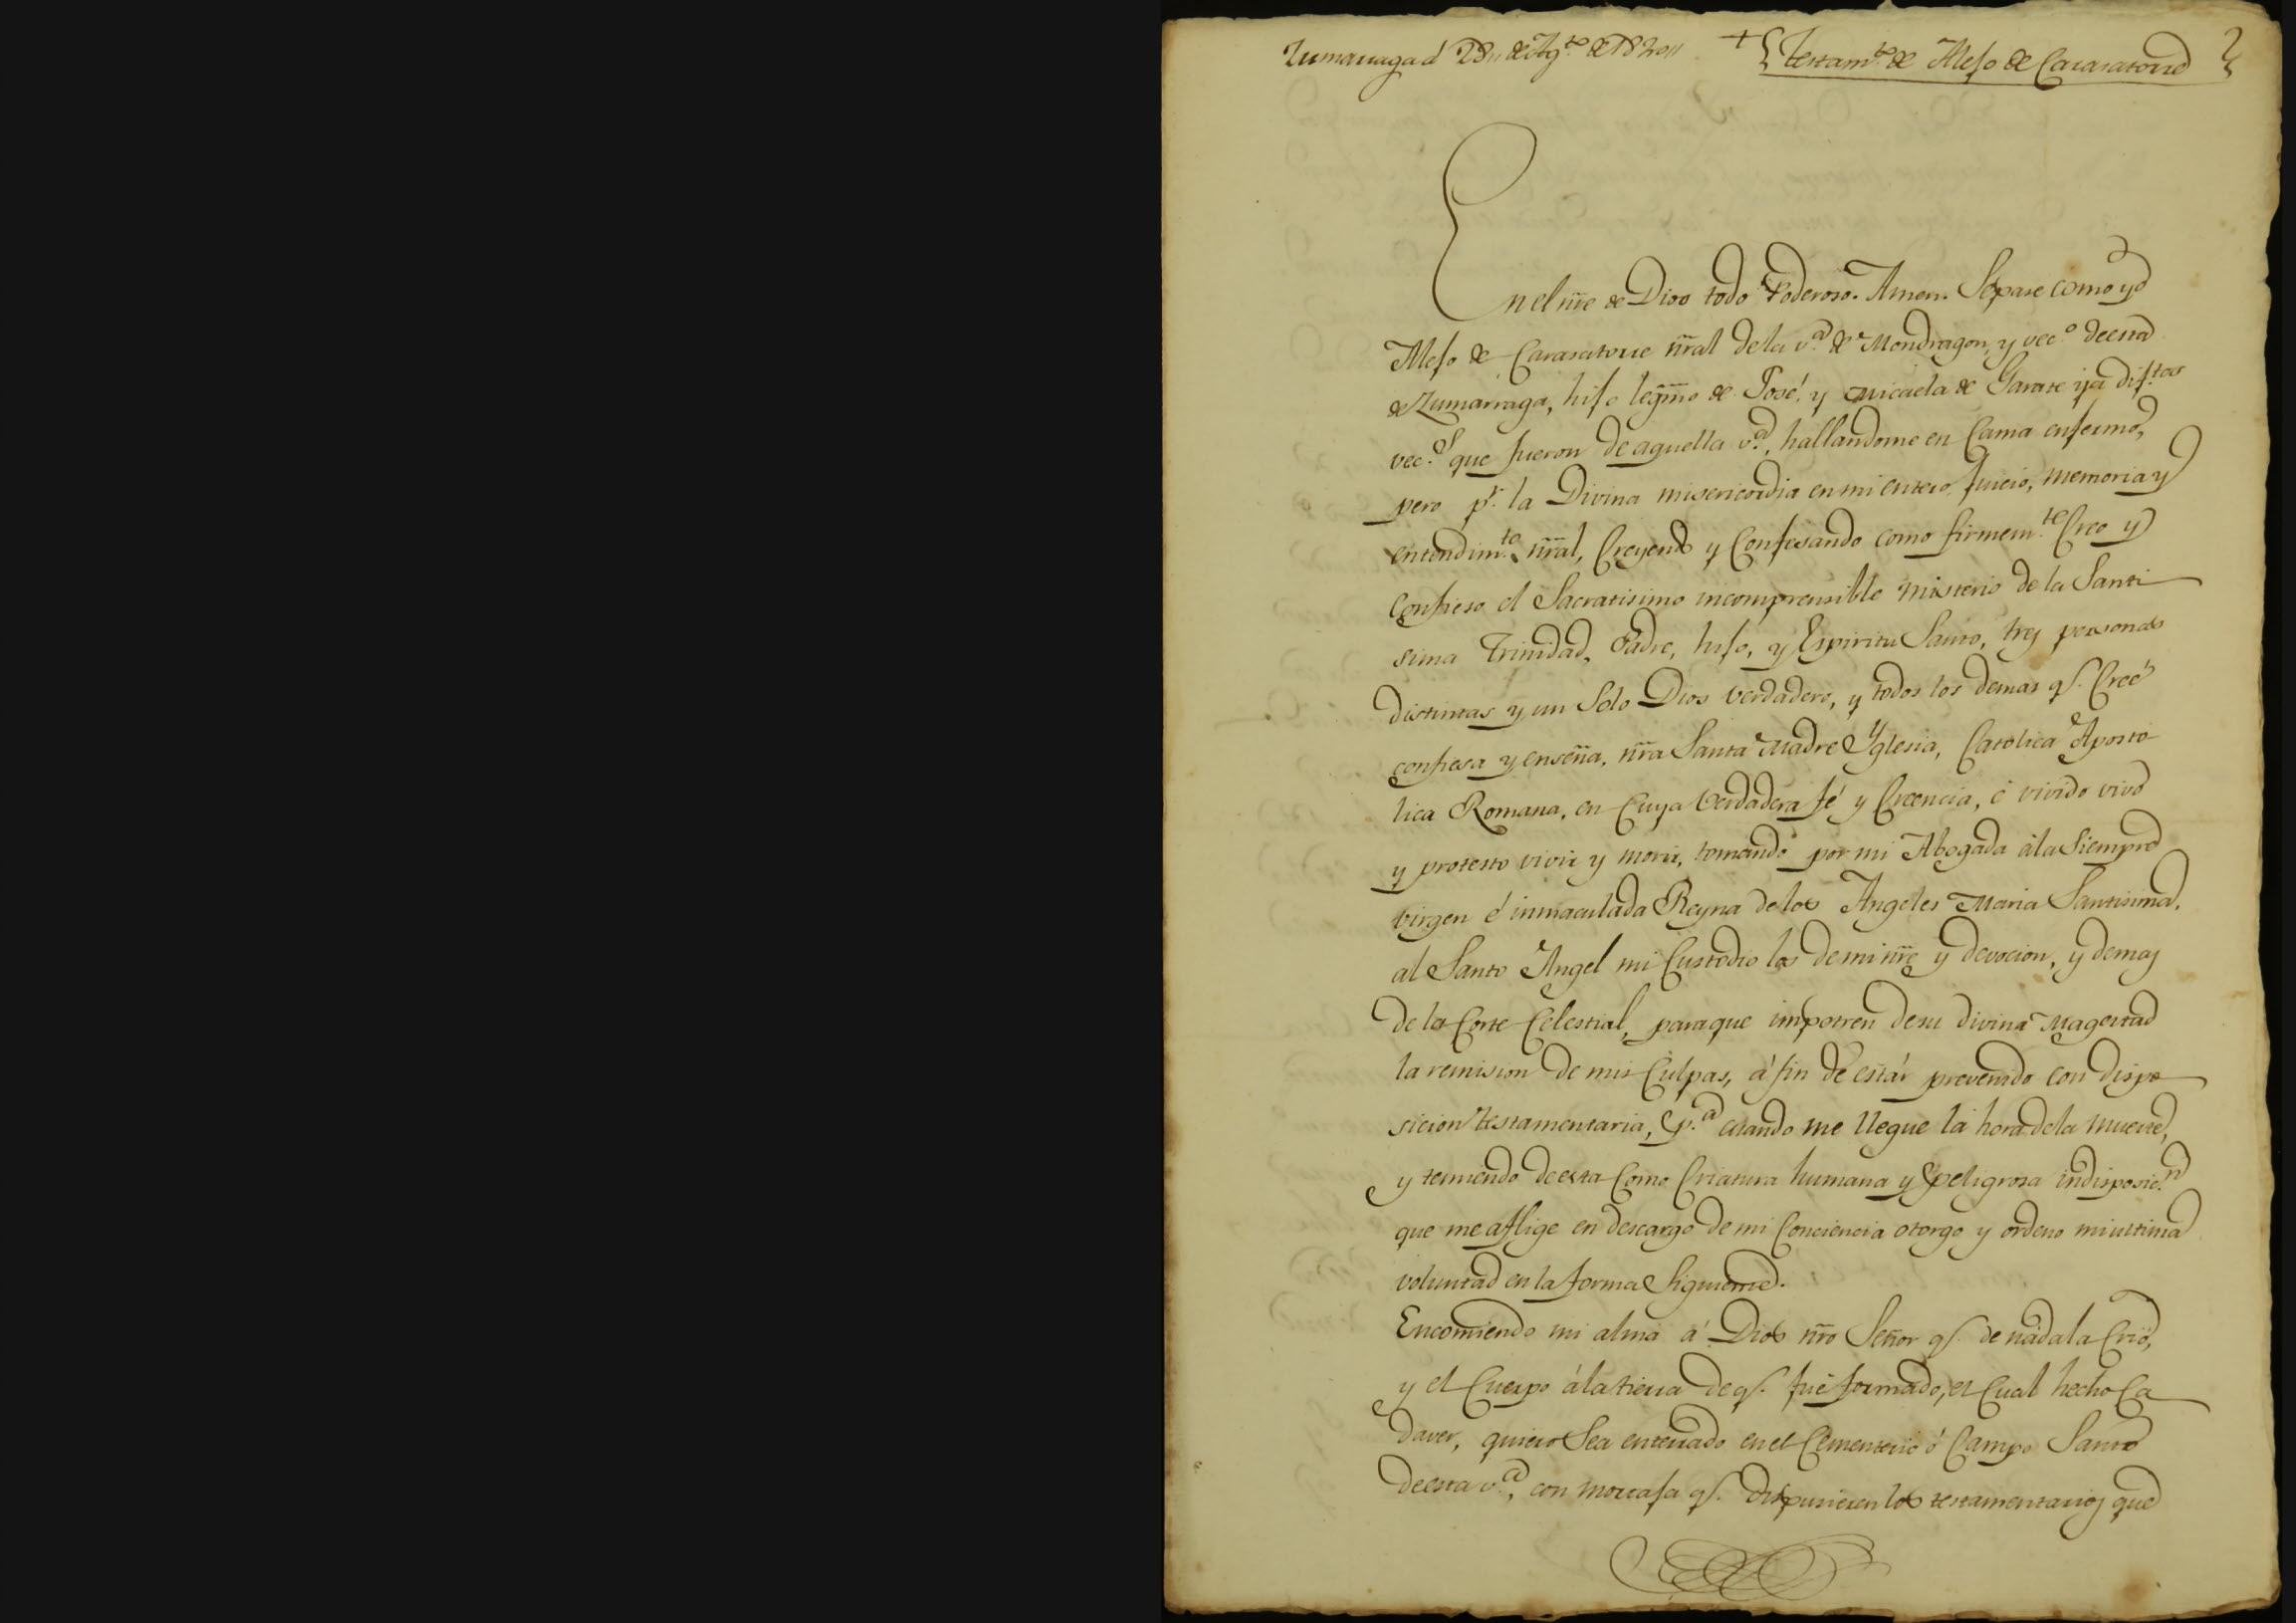 Zumarraga á 28,, de Ag.to de 1820,, + Testam.to de Alejo de Carasatorre
En el ñre de Dios todo Poderoso. Amen. Sepase como yo
Alejo de Carasatorre ñral de la v.a de Mondragon, y vec.o de esta
de Zumarraga, hijo legmo de José, y Micaela de Garate ya dif.tos
vec.s que fueron de aquella v.a, hallandome en Cama enfermo,
pero p.r la Divina misericordia en mi entero Juicio, memoria y
entendim.to ñral, Creyendo y Confesando como firmem.te Creo y
Confieso el Sacratisimo incomprensible misterio de la Santi
sima Trinidad, Padre, hijo, y Espiritu Santo, tres personas
distintas y un Solo Dios verdadero, y todos los demas q.e Creé
confiesa y enseña, ñra Santa Madre Yglesia, Catolica Aposto
lica Romana, en Cuya verdadera fé y Creencia, é vivido vivo
y protesto vivir y morir, tomando por mi Abogada á la Siempre
virgen é inmaculada Reyna de los Angeles Maria Santisima,
al Santo Angel mi Custodio los de mi ñre y devocion, y demas
de la Corte Celestial, para que impetren de su divina Magestad
la remision de mis Culpas, á fin de estár prevenido con dispo
sicion testamentaria, p.a cuando me llegue la hora de la muerte,
y temiendo de esta Como Criatura humana y peligrosa indisposic.n
que me aflige en descargo de mi Conciencia otorgo y ordeno mi ultima
voluntad en la forma Siguiente.
Encomiendo mi alma á Dios ñro Señor q.e de nada la Crió,
y el Cuerpo á la tierra de q.e fué formado, el Cual hecho Ca
daver, quiero Sea enterrado en el Cementerio ó Campo Santo
de esta v.a, con mortaja q.e dispusieren los testamentarios que